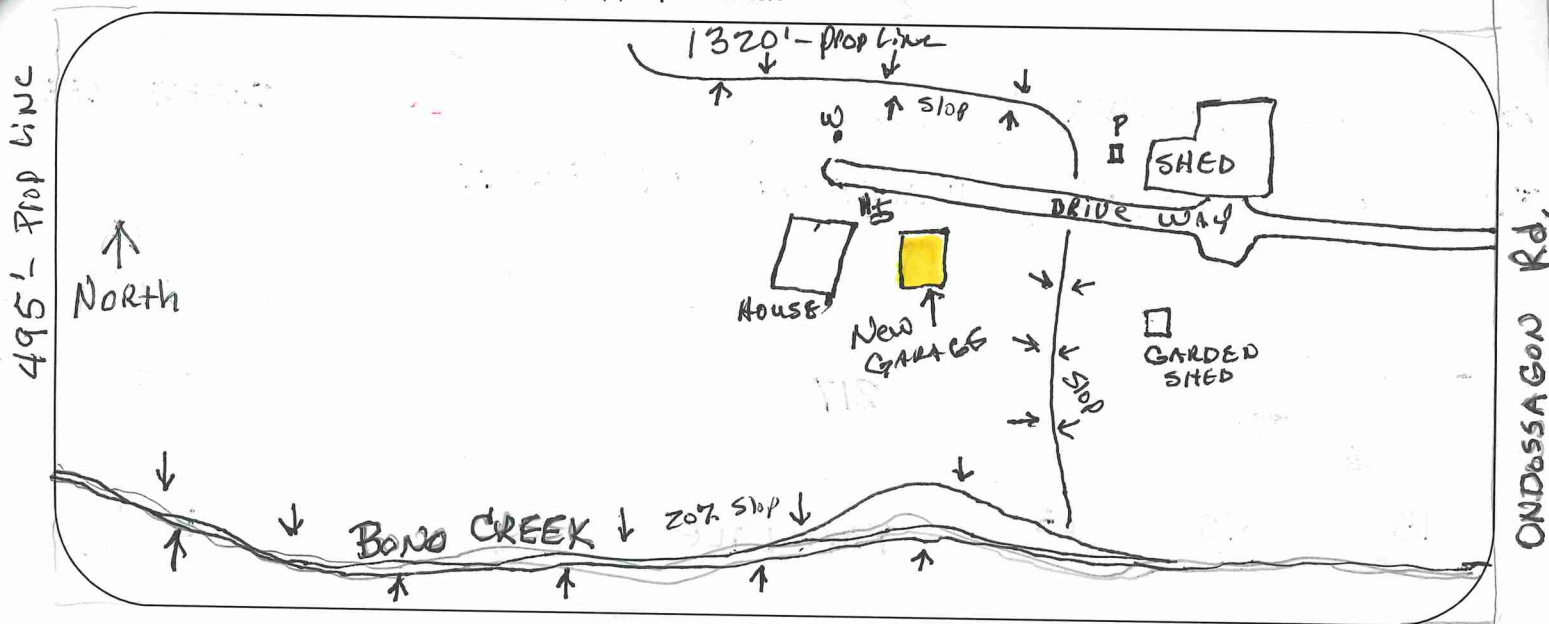 1320'- Prop Line
495'- Prop Line
North
W
Slop
P
SHED
DRIVE WAY
House
New
GARAGE
GARDEN
SHED
Slop
BONO CREEK
20% Slop
ONDOSSAGON Rd.